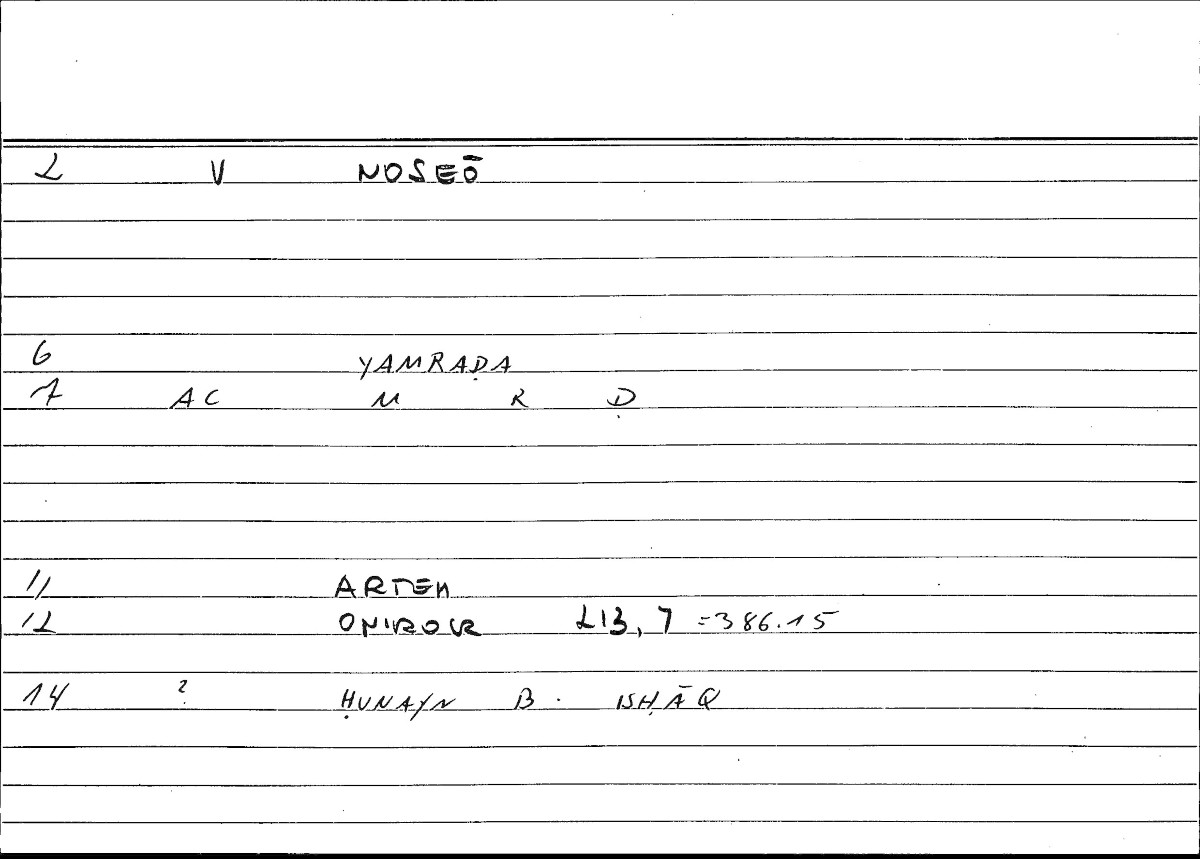 2 V NOSEŌ
6 YAMRAḌA
7 AC M R Ḍ
11 ARTEM
12 ONIROCR 213,7 =386.15
14 ? ḤUNAYN B. ISḤĀQ